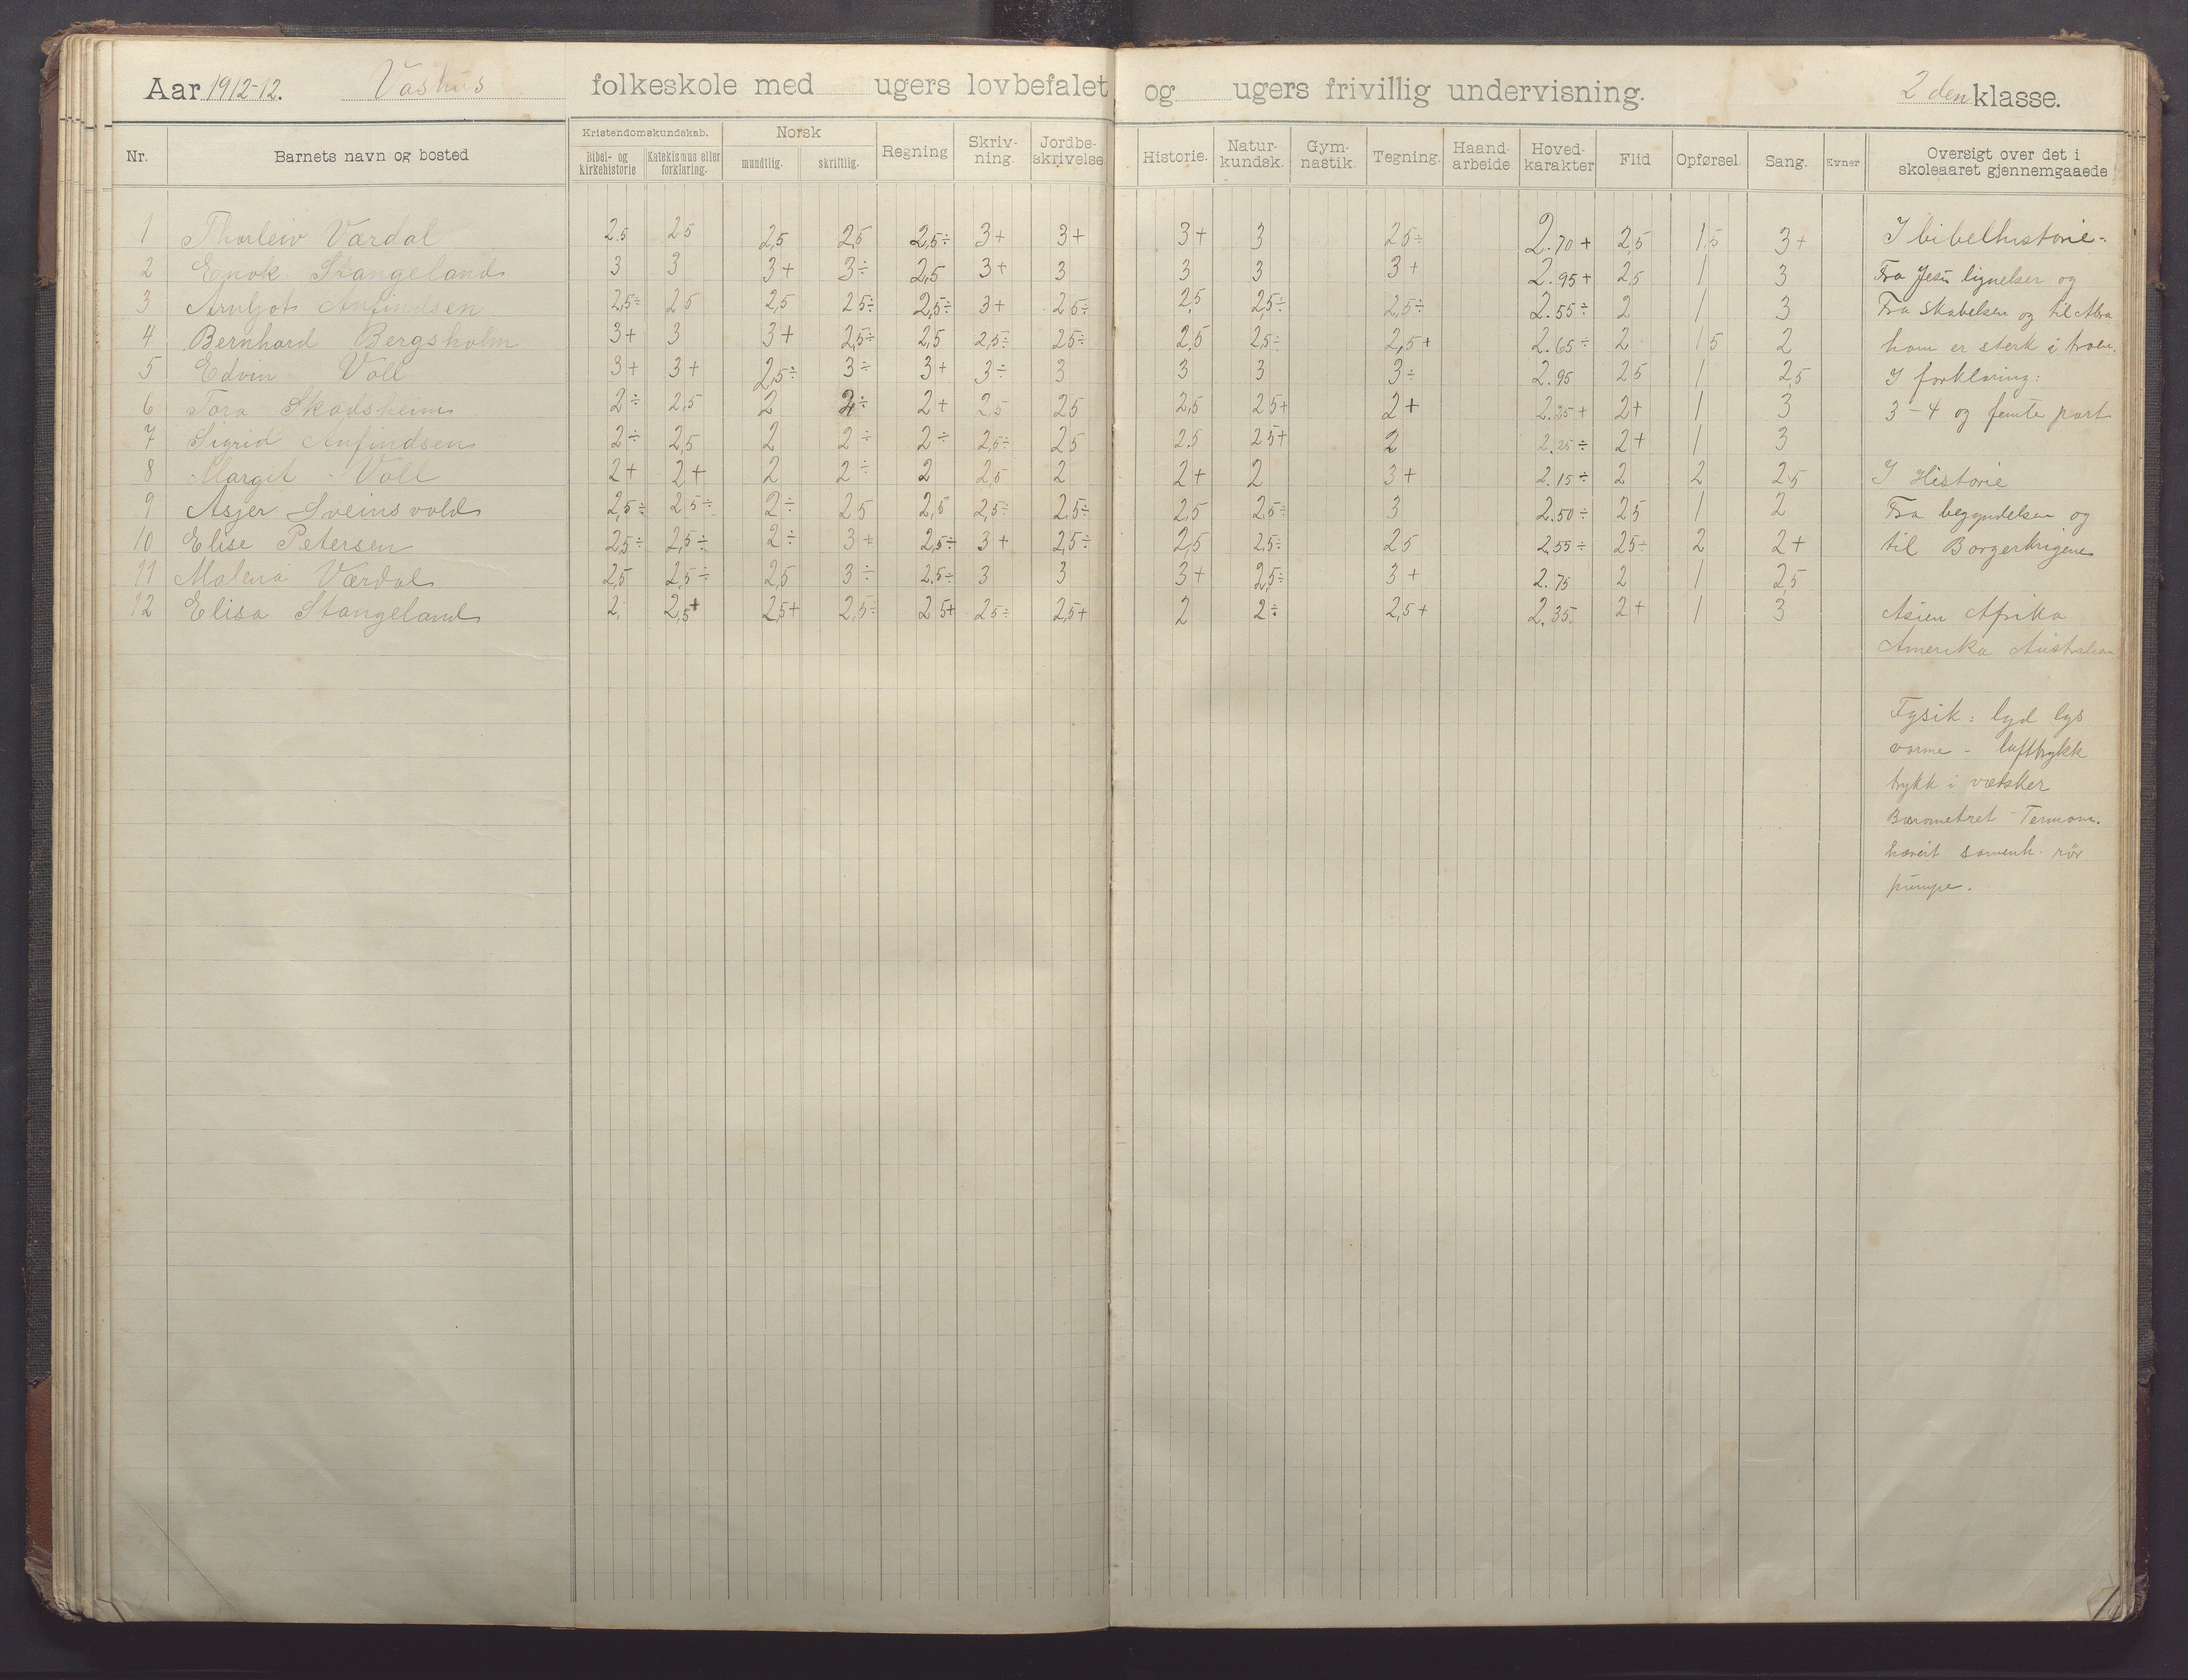 Aar 1912-12. Vashus folkeskole med ugers lovbefalet og ugers frivillig undervisning. 2 den klasse.
Nr. Barnets navn og bosted Kristendomskundskab. Bibel- og kirkehistorie Katekismus eller forklaring. Norsk mundtlig. skriftlig. Regning Skriv-ning. Jordbe-skrivelse Historie. Natur-kundsk. Gym-nastik. Tegning. Haand-arbeide Hoved-karakter Flid Opførsel. Sang. Evner Oversigt over det i skoleaaret gjennemgaaede
1 Thorleiv Vardal 2.5 25 2,5 2,5 2,5÷ 3+ 3+ 3+ 3 25÷ 2.70+ 2,5 1,5 3+ I bibelhistorie-
2 Enok Stangeland 3 3 3+ 3÷ 2,5 3+ 3 3 3 3+ 2.95+ 2,5 1 3 Fra Jesu lignelser og
3 Arnljot Anfindsen 2,5÷ 25 2,5 25÷ 2,5÷ 3+ 25÷ 2,5 2,5÷ 2,5÷ 2.55÷ 2 1 3 Fra Skabelsen og til Abra
4 Bernhard Bergsholm 3+ 3 3+ 2,5÷ 2,5 2,5÷ 25÷ 2,5 2,5÷ 2,5+ 2.65÷ 2 1 5 2 ham er sterk i troen.
5 Edvin Voll 3+ 3+ 2,5÷ 3÷ 3+ 3÷ 3 3 3 3÷ 2.95 25 1 2,5 I forklaring:
6 Tora Skadsheim 2÷ 2,5 2 2÷ 2+ 2,5 25 2,5 25+ 2+ 2.25+ 2+ 1 3 3-4 og femte part
7 Sigrid Anfindsen 2÷ 2,5 2 2÷ 2÷ 2,5÷ 25 2.5 25+ 2 2.25÷ 2+ 1 3
8 Margit Voll 2+ 2+ 2 2÷ 2 2,5 2 2+ 2 3+ 2.15÷ 2 2 2,5 I Historie
9 Asjer Sveinsvold 2,5÷ 25÷ 2÷ 25 2,5 2,5÷ 2,5÷ 2,5 2,5÷ 3 2.50÷ 25 1 2 Fra begyndelsen og
10 Elise Petersen 2,5÷ 2,5÷ 2÷ 3+ 2,5÷ 3+ 2,5÷ 2,5 2,5÷ 25 2.55÷ 25÷ 2 2+ til Borgerkrigene
11 Malena Værdal 2,5 2,5÷ 2,5 3÷ 2.5÷ 3 3 3+ 2,5÷ 3+ 2.75 2 1 2,5
12 Elisa Stangeland 2. 2,5+ 2,5+ 2,5÷ 25+ 25÷ 2,5+ 2 2÷ 2,5+ 2.35. 2+ 1 3 Asien Afrika
Amerika Australien
Fysik: lyd lys
varme - lufttrykk
trykk i vætsker
Barometret - Termom.
hævert samenh. rør
pumpe.